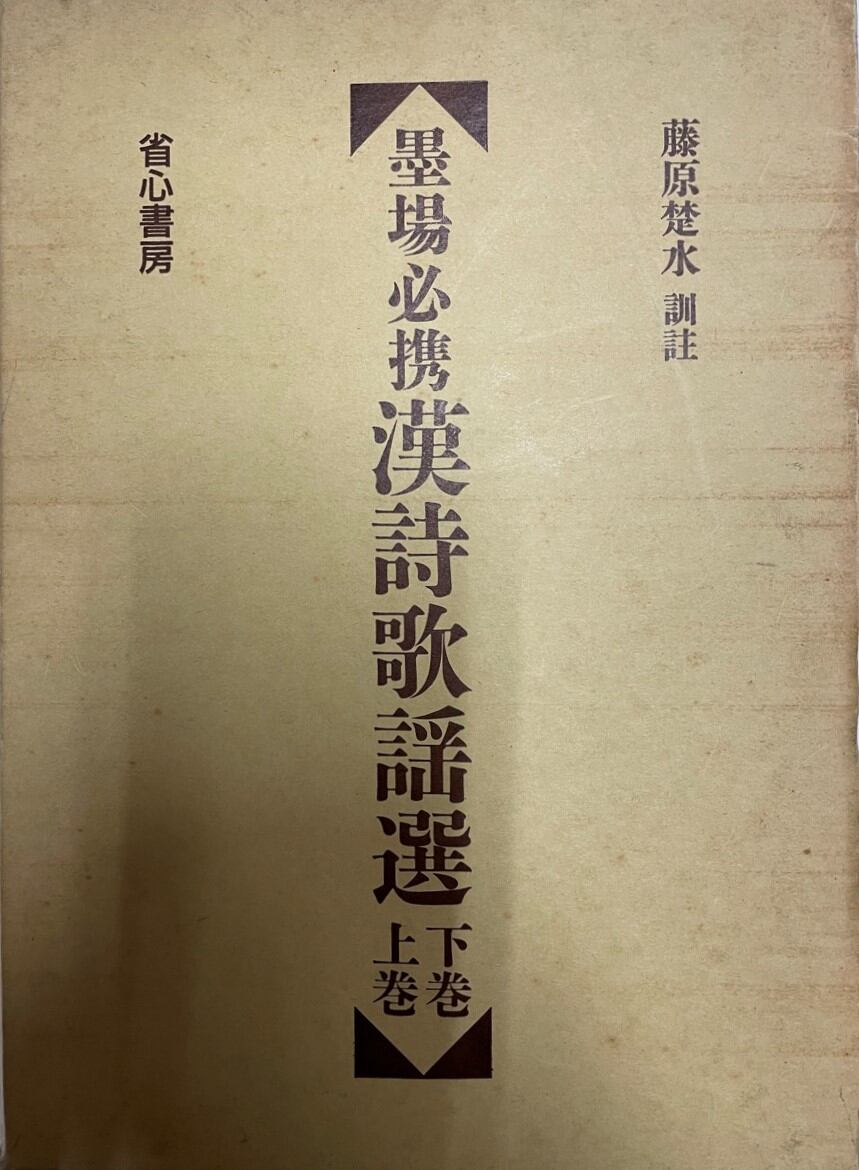 藤原楚水 訓註
墨場必携漢詩歌謡選
下巻
上巻
省心書房